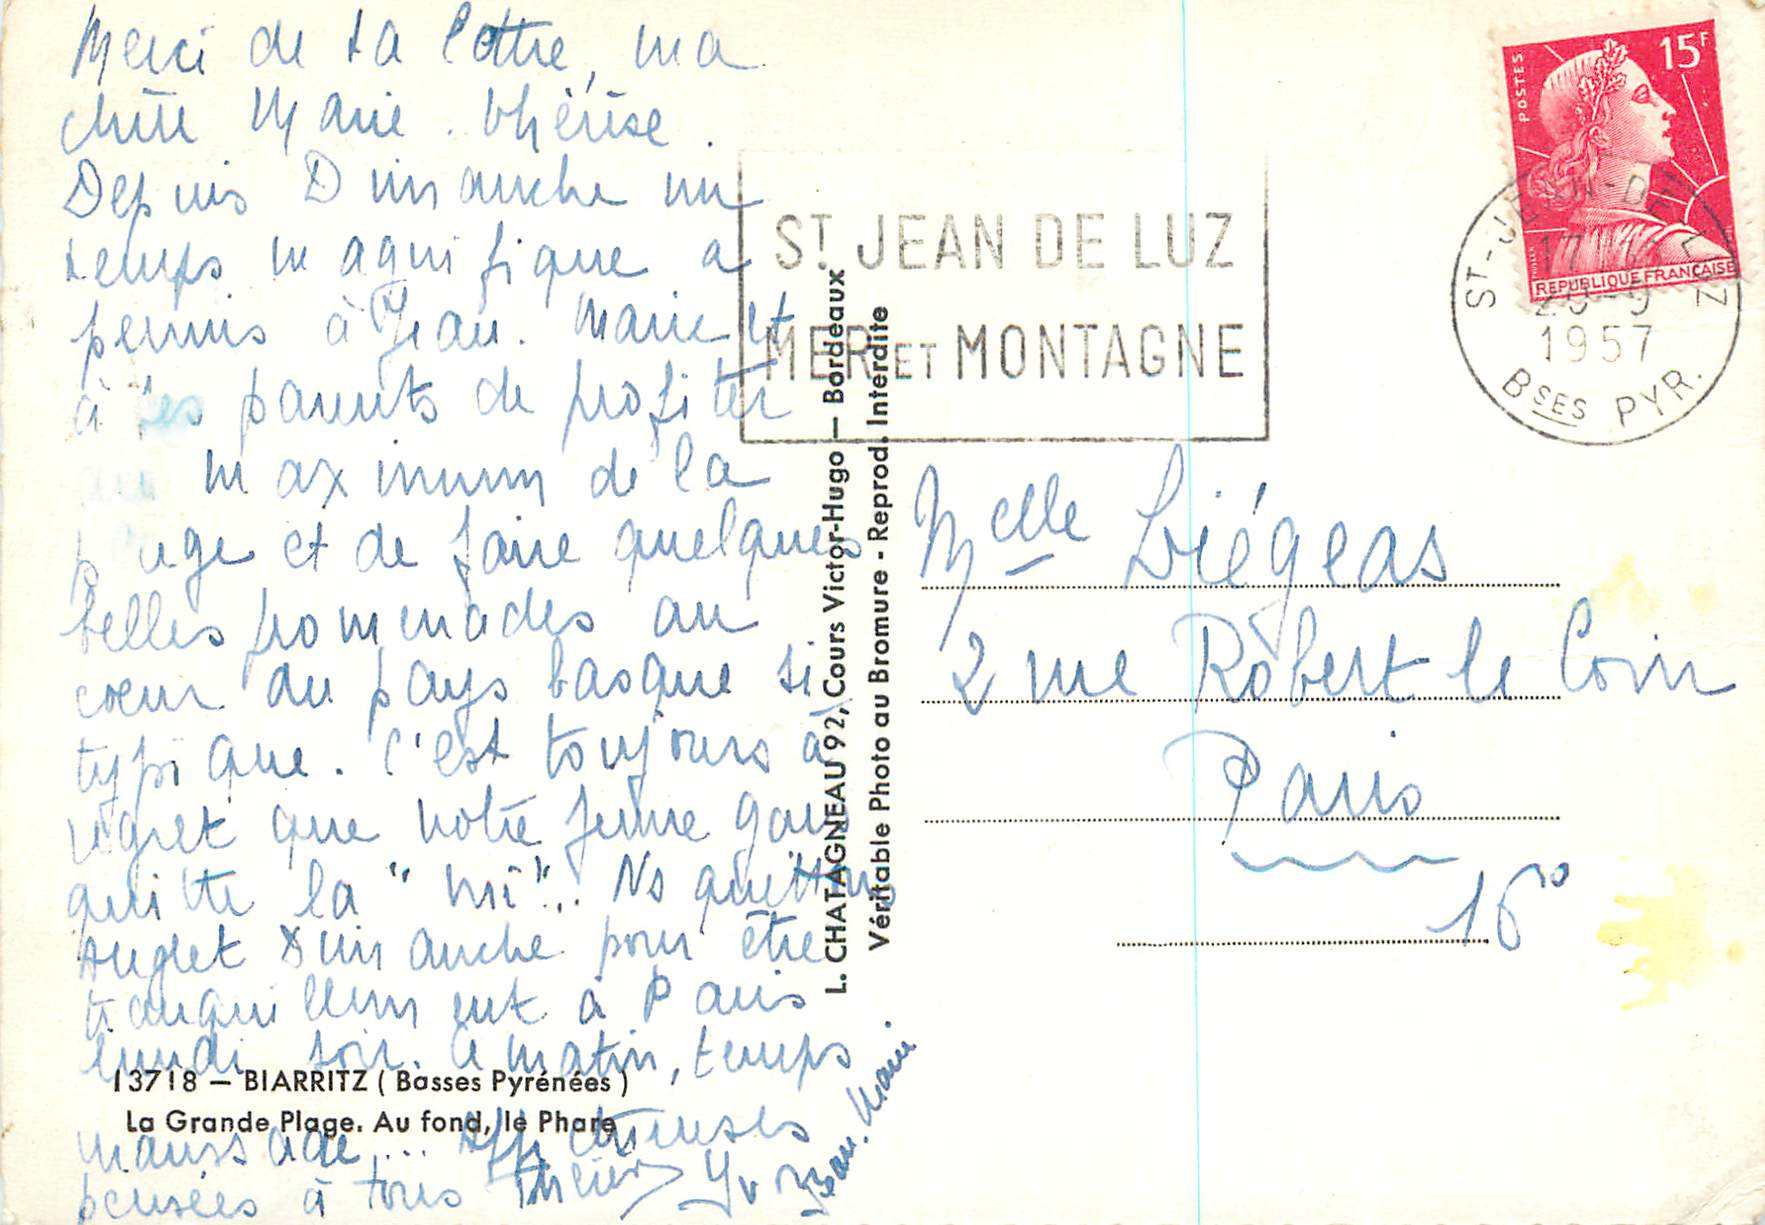 Merci de ta lettre, ma
chère Marie-Thérèse.
Depuis Dimanche un
temps magnifique a
permis à Jean-Marie et
à ses parents de profiter
au maximum de la
plage et de faire quelques
belles promenades au
coeur du pays basque si
typique. C'est toujours à
regret que notre jeune gars
quitte la "mé"... Ns quittons
Anglet Dimanche pour être
tranquillement à Paris
lundi soir. Ce matin, temps
maussade... Affectueuses
pensées à tous
Jean-Marie
13718 — BIARRITZ ( Basses Pyrénées )
La Grande Plage. Au fond, le Phare
L. CHATAGNEAU 92, Cours Victor-Hugo — Bordeaux
Véritable Photo au Bromure - Reprod. Interdite
ST. JEAN DE LUZ
MER ET MONTAGNE
POSTES
15F
REPUBLIQUE FRANÇAISE
ST-JEAN-DE-LUZ
1957
BSES PYR.
Melle Liégeas
2 rue Robert le Coin
Paris
16°